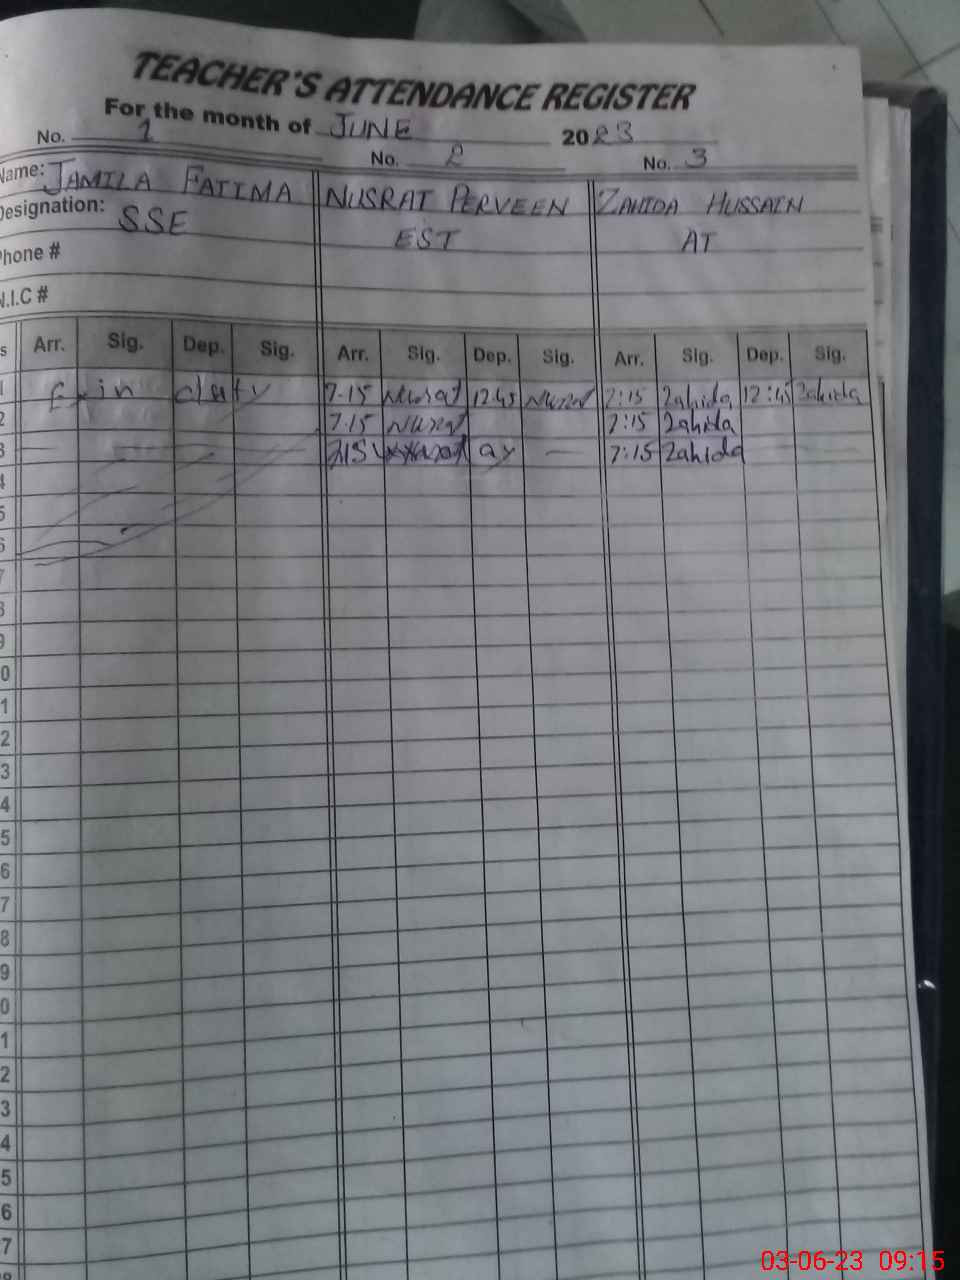 TEACHER'S ATTENDANCE REGISTER
For the month of JUNE 2023
No. 1 No. 2 No. 3
Name: JAMILA FATIMA NUSRAT PERVEEN ZAHIDA HUSSAIN
Designation: SSE EST AT
Phone #
N.I.C #
s Arr. Sig. Dep. Sig. Arr. Sig. Dep. Sig. Arr. Sig. Dep. Sig.
1 duty 7.15 Nusrat 12:45 Nusrat 7:15 Zahida 12:45 Zahida
2 7.15 Nusrat 7:15 Zahida
3 7:15 Zahida
4
5
6
7
8
9
0
1
2
3
4
5
6
7
8
9
0
1
2
3
4
5
6
7
8
03-06-23 09:15